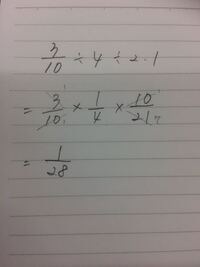 3/10 ÷ 4 ÷ 2.1
= 3/10 × 1/4 × 10/21
= 1/28